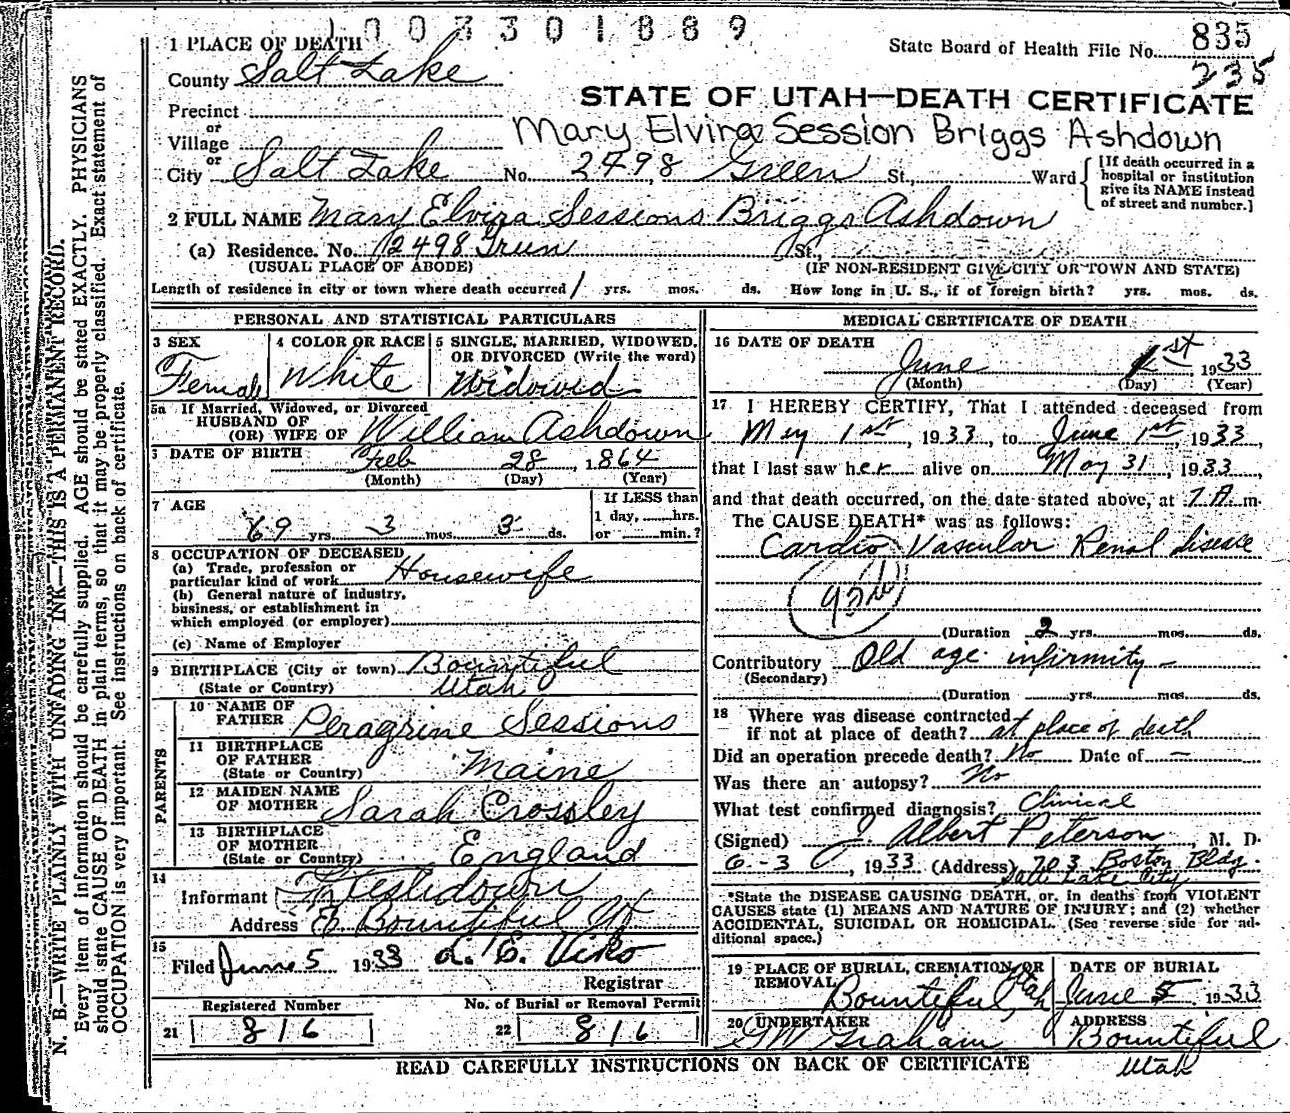 1003301889
1 PLACE OF DEATH
State Board of Health File No. 835
235
County Salt Lake
STATE OF UTAH—DEATH CERTIFICATE
Precinct
or
Village
Mary Elvira Session Briggs Ashdown
or
City Salt Lake No. 2498 Green St., Ward
[If death occurred in a hospital or institution give its NAME instead of street and number.]
2 FULL NAME Mary Elvira Sessions Briggs Ashdown
(a) Residence. No. 2498 Green St.,
(USUAL PLACE OF ABODE) (IF NON-RESIDENT GIVE CITY OR TOWN AND STATE)
Length of residence in city or town where death occurred 1 yrs. mos. ds. How long in U. S., if of foreign birth? yrs. mos. ds.
PERSONAL AND STATISTICAL PARTICULARS
3 SEX
Female
4 COLOR OR RACE
White
5 SINGLE, MARRIED, WIDOWED, OR DIVORCED (Write the word)
Widowed
5a If Married, Widowed, or Divorced
HUSBAND OF
(OR) WIFE OF William Ashdown
6 DATE OF BIRTH Feb 28, 1864
(Month) (Day) (Year)
7 AGE
69 yrs. 3 mos. 3 ds.
If LESS than
1 day, hrs.
or min.?
8 OCCUPATION OF DECEASED
(a) Trade, profession or
particular kind of work Housewife
(b) General nature of industry,
business, or establishment in
which employed (or employer)
(c) Name of Employer
9 BIRTHPLACE (City or town) Bountiful
(State or Country) Utah
PARENTS
10 NAME OF
FATHER Peragrine Sessions
11 BIRTHPLACE
OF FATHER
(State or Country) Maine
12 MAIDEN NAME
OF MOTHER Sarah Crossley
13 BIRTHPLACE
OF MOTHER
(State or Country) England
14
Informant
Address E. Bountiful Ut.
15
Filed June 5 1933 L. E. Viko
Registrar
Registered Number
21 816
No. of Burial or Removal Permit
22 816
MEDICAL CERTIFICATE OF DEATH
16 DATE OF DEATH
June 1st 1933
(Month) (Day) (Year)
17 I HEREBY CERTIFY, That I attended deceased from
May 1st, 1933, to June 1st, 1933,
that I last saw her alive on May 31, 1933,
and that death occurred, on the date stated above, at 7 A. m.
The CAUSE DEATH* was as follows:
Cardio Vascular Renal disease
(Duration 2 yrs. mos. ds.
Contributory Old age infirmity
(Secondary)
(Duration yrs. mos. ds.
18 Where was disease contracted
if not at place of death? at place of death
Did an operation precede death? No Date of —
Was there an autopsy? No
What test confirmed diagnosis? Clinical
(Signed) J. Albert Peterson, M. D.
6-3, 1933 (Address) 703 Boston Bldg.
Salt Lake City
*State the DISEASE CAUSING DEATH, or, in deaths from VIOLENT
CAUSES state (1) MEANS AND NATURE OF INJURY; and (2) whether
ACCIDENTAL, SUICIDAL OR HOMICIDAL. (See reverse side for ad-
ditional space.)
19 PLACE OF BURIAL, CREMATION, OR
REMOVAL
Bountiful, Utah
DATE OF BURIAL
June 5 1933
20 UNDERTAKER
GW Graham
ADDRESS
Bountiful
Utah
READ CAREFULLY INSTRUCTIONS ON BACK OF CERTIFICATE
N. B.—WRITE PLAINLY WITH UNFADING INK—THIS IS A PERMANENT RECORD.
Every item of information should be carefully supplied. AGE should be stated EXACTLY. PHYSICIANS
should state CAUSE OF DEATH in plain terms, so that it may be properly classified. Exact statement of
OCCUPATION is very important. See instructions on back of certificate.